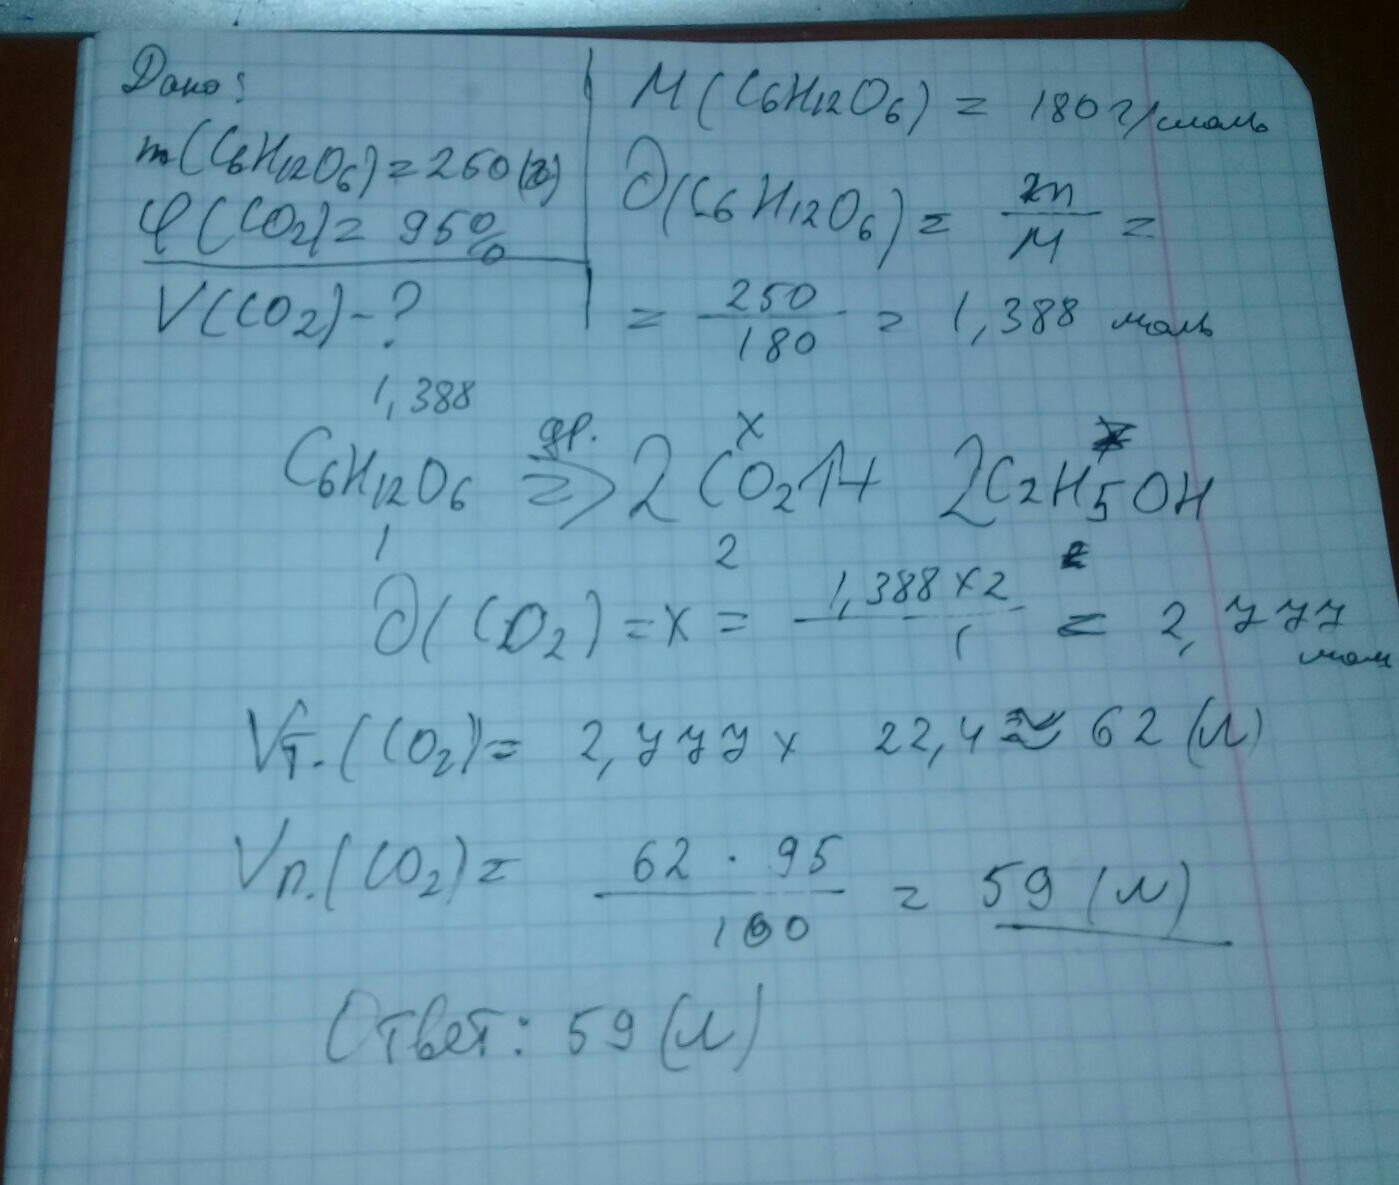 Дано:
m(C6H12O6)=250(г)
φ(CO2)=95%
V(CO2)-?
M(C6H12O6) = 180 г/моль
∂(C6H12O6) = m/M =
= 250/180 = 1,388 моль
1,388 x
C6H12O6 др. => 2CO2↑+ 2C2H5OH
1 2
∂(CO2)=x= 1,388×2/1 = 2,777 моль
Vт.(CO2)= 2,777 × 22,4≈62 (л)
Vп.(CO2)= 62 · 95/100 = 59 (л)
Ответ: 59 (л)